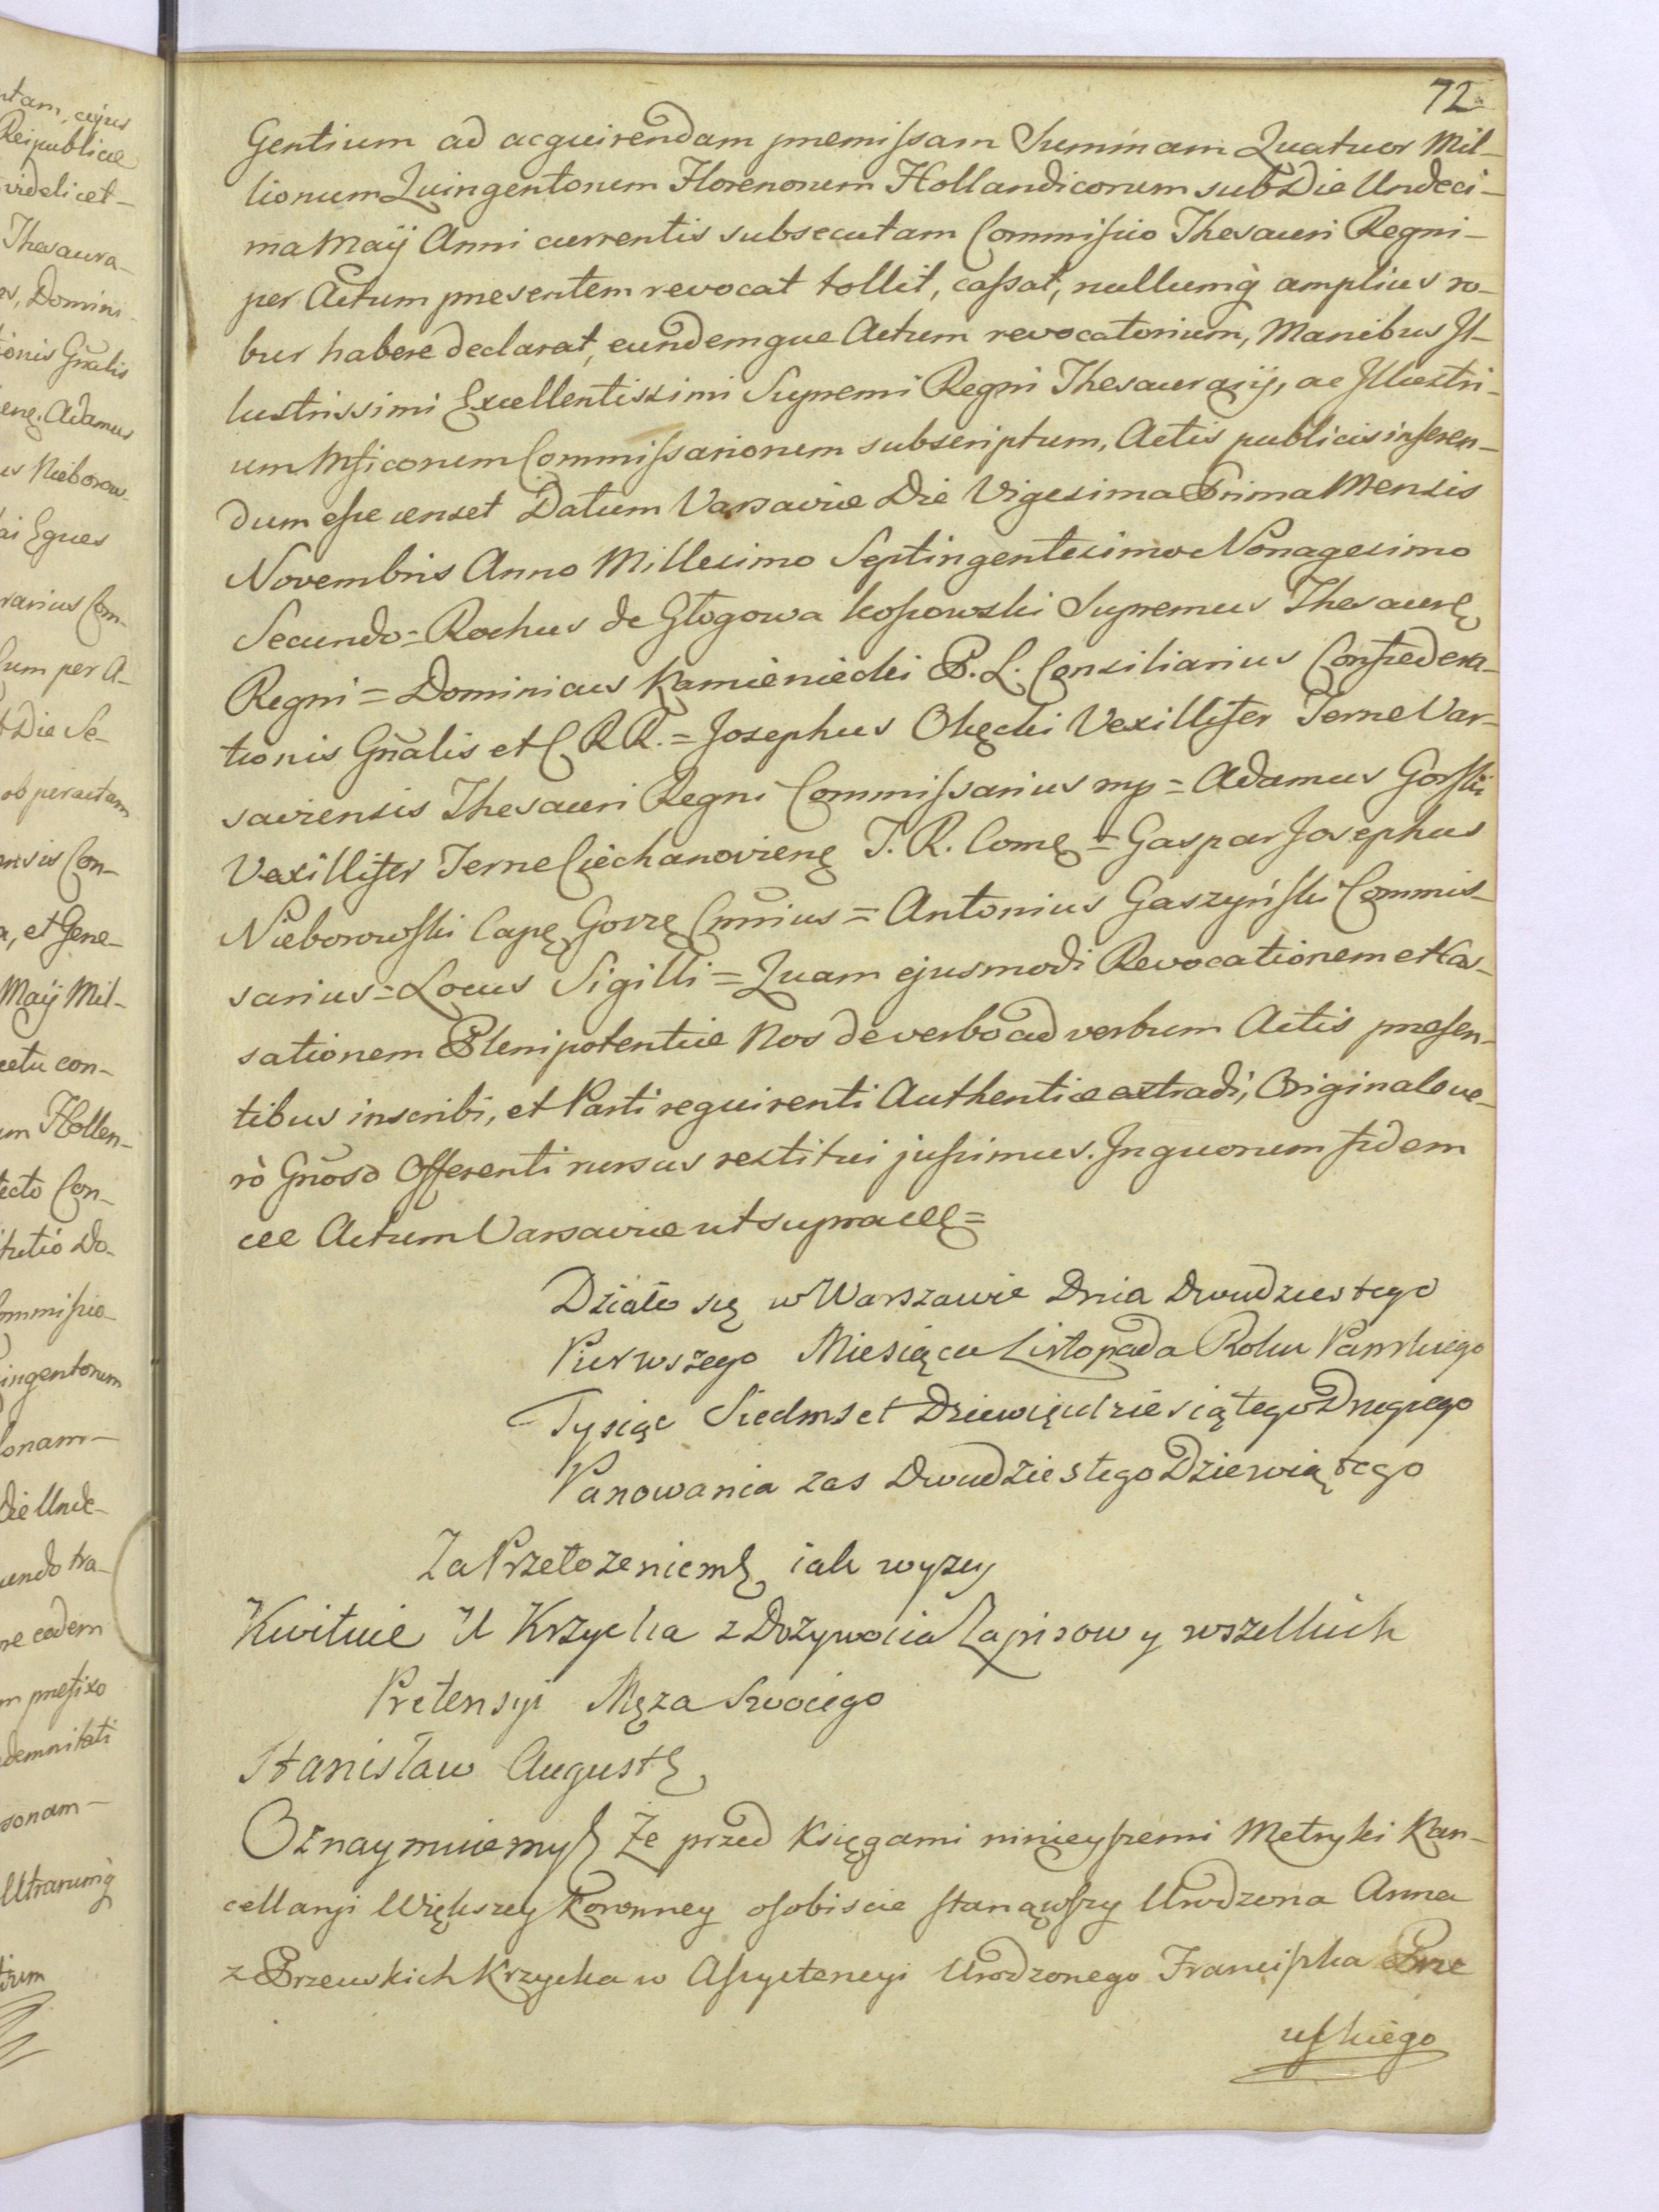 72
Gentium ad acquirendam præmissam Summam Quatuor Mil-
lionum Quingentorum Florenorum Hollandicorum sub Die Undeci-
ma Maÿ Anni currentis subsecutam Commissio Thesauri Regni-
per Actum præsentem revocat tollit, cassat, nullumq̀ amplius ro-
bur habere declarat, eundemque Actum revocatorium, Manibus Il-
lustrissimi Excellentissimi Supremi Regni Thesaurarij, ac Illustri-
um Mficorum Commissariorum subscriptum, Actis publicis inseren-
dum esse censet Datum Varsaviæ Die Vigesima Prima Mensis
Novembris Anno Millesimo Septingentesimo Nonagesimo
Secundo = Rochus de Głogowa Kossowski Supremus Thesaurę
Regni = Dominicus Kamieniecki P. L. Consiliarius Confœdera-
tionis Gñalis et C R R. = Josephus Olȩcki Vexillifer Terræ Var-
saviensis Thesauri Regni Commissarius mp = Adamus Gorski
Vexillifer Terræ Ciechanovienę T. R. Comę = Gaspar Josephus
Nieborowski Capę Gorzę Cm̃ius = Antonius Gaszyński Commis-
sarius = Locus Sigilli = Quam ejusmodi Revocationem et Cas-
sationem Plenipotentiæ Nos de verbo ad verbum Actis præsen-
tibus inscribi, et Parti requirenti Authentice extradi, Originale ve-
rò Gñoso Offerenti rursus restitui jussimus. In quorum fidem
Actum Varsaviæ ut supra
Działo się w Warszawie Dnia Dwudziestego
Pierwszego Miesiąca Listopada Roku Pańskiego
Tysiąc Siedmset Dziewięćdziesiątego Drugiego
Panowania zas Dwudziestego Dziewiątego
Za Przełozeniemę iak wyzey
Kwituie U Krzycka z Dozywocia Zapisow y wszelkich
Pretensyi Męza Swoiego
Stanisław Augustę
Oznaymuiemyę Ze przed Księgami ninieyszemi Metryki Kan-
cellaryi Większey Koronney osobiscie stanąwszy Urodzona Anna
z Brzewskich Krzycka w Assystencyi Urodzonego Franciszka Brze
uskiego